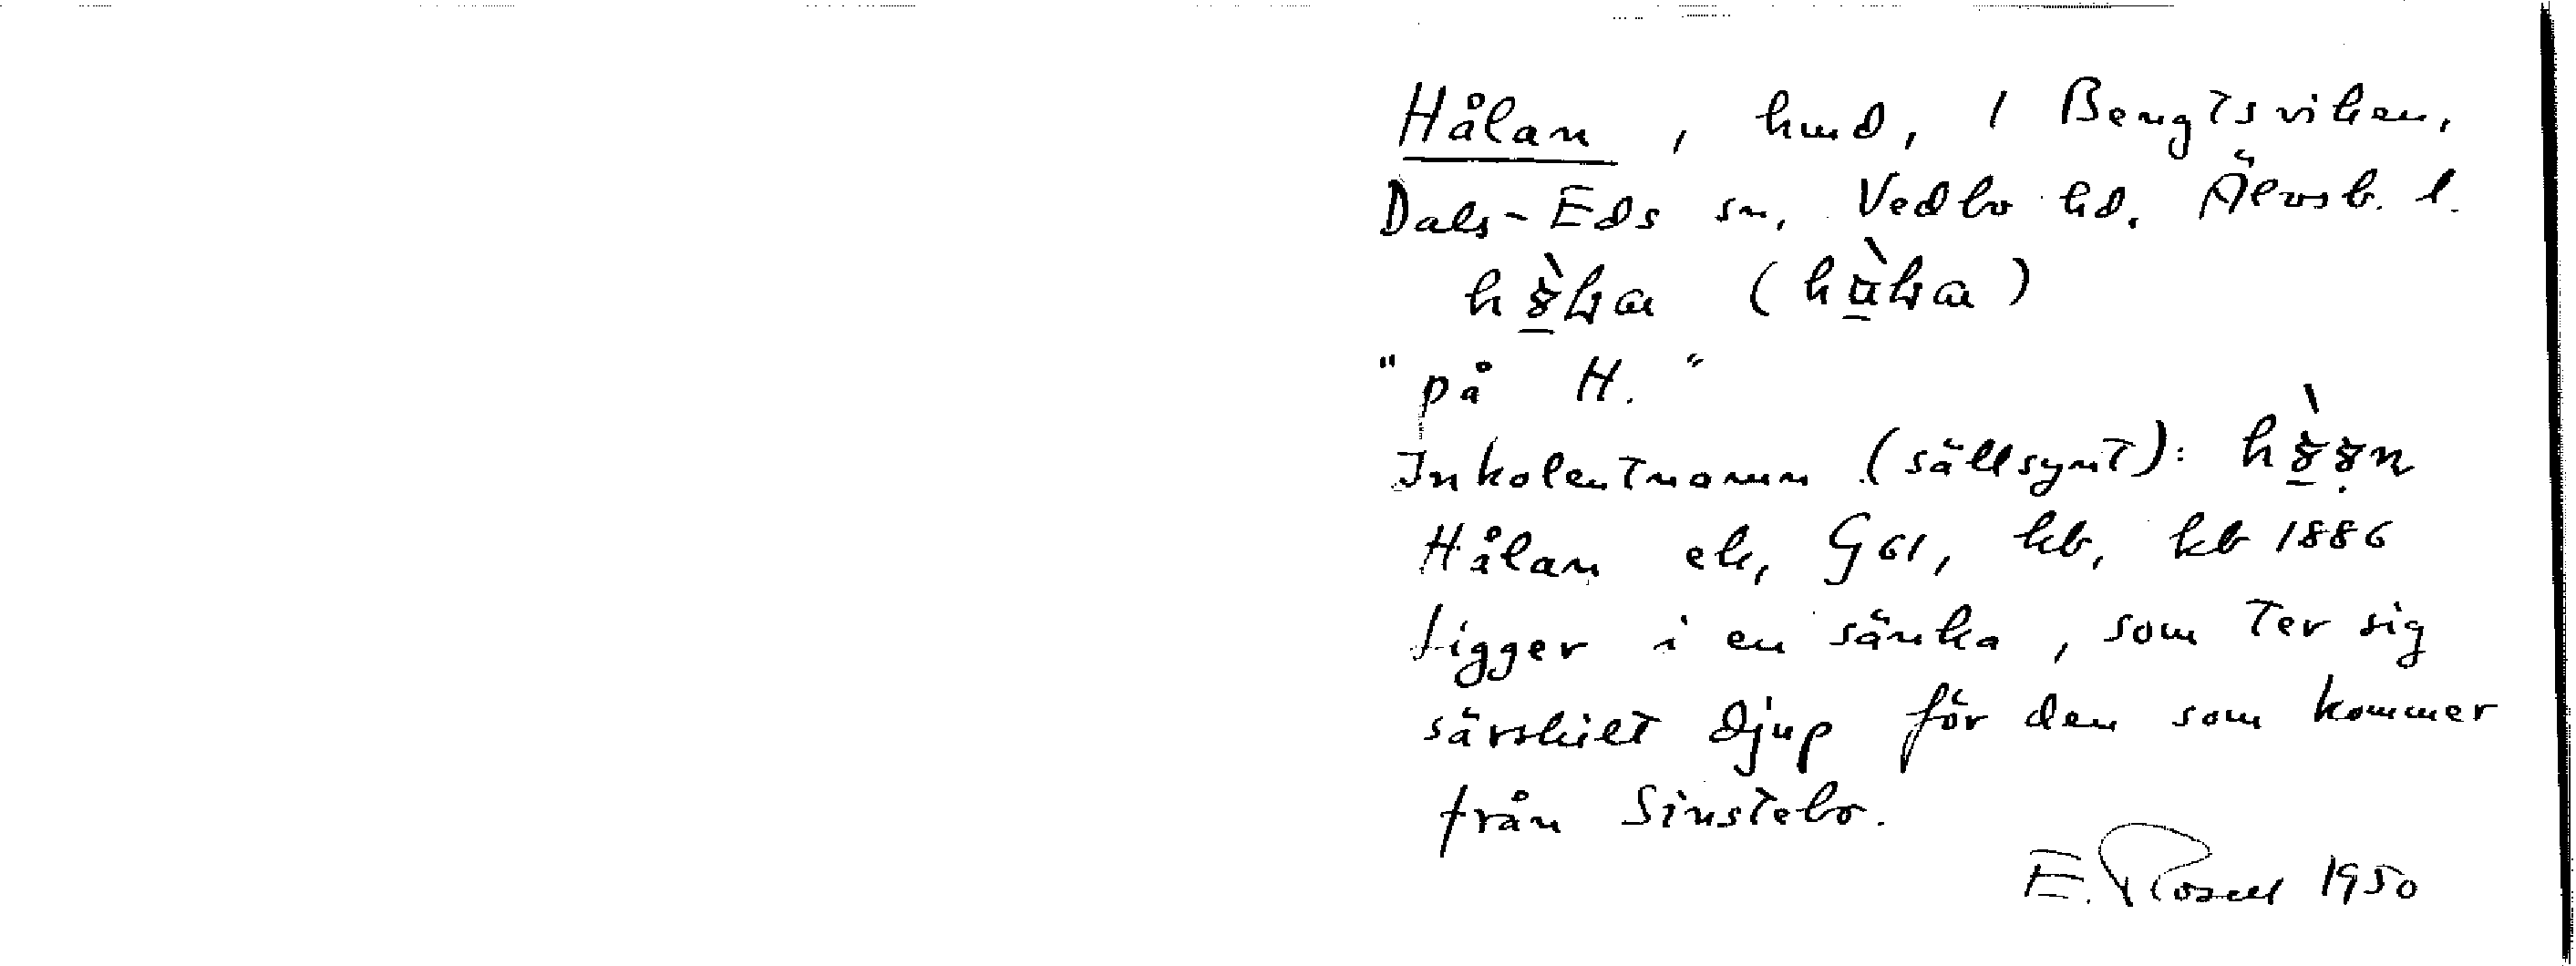 Hålan, hmd, 1 Bengtsviken,
Dals-Eds sn, Vedbo hd. Älvsb. l.
"på H."
Inkolentnamn (sällsynt):
Hålan ek, G61, kb, kb 1886
Ligger i en sänka, som ter sig
särskilt djup för den som kommer
från Sinstebo.
E. Rosell 1950